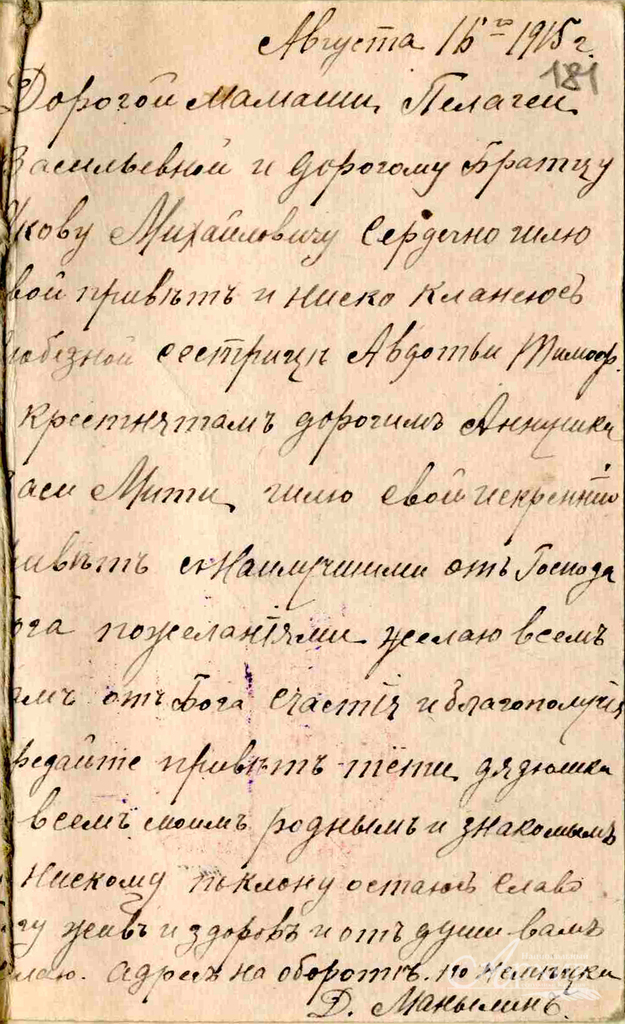 Августа 16го 1915 г.
181
Дорогой мамаши Пелагеи
Васильевной и дорогому братцу
Якову Михайловичу Сердечно шлю
вой привѣтъ и ниско кланеюсъ
любезной сестрицѣ Авдотьи Тимооф.
крестнятамъ дорогимъ Аннушка
Васи Мити шлю свой искренній
ивѣтъ с Наилучшими отъ Господа
ога пожеланіями желаю всемъ
амъ отъ Бога счастія и благополучія
редайте привѣтъ тети, дядюшка
всемъ моимъ роднымъ и знакомымъ
нискому поклону остаюсъ Славо
гу живъ и здоровъ и отъ души вамъ
лаю. адресъ на оборотѣ. по немецки
Д. Манылинъ.